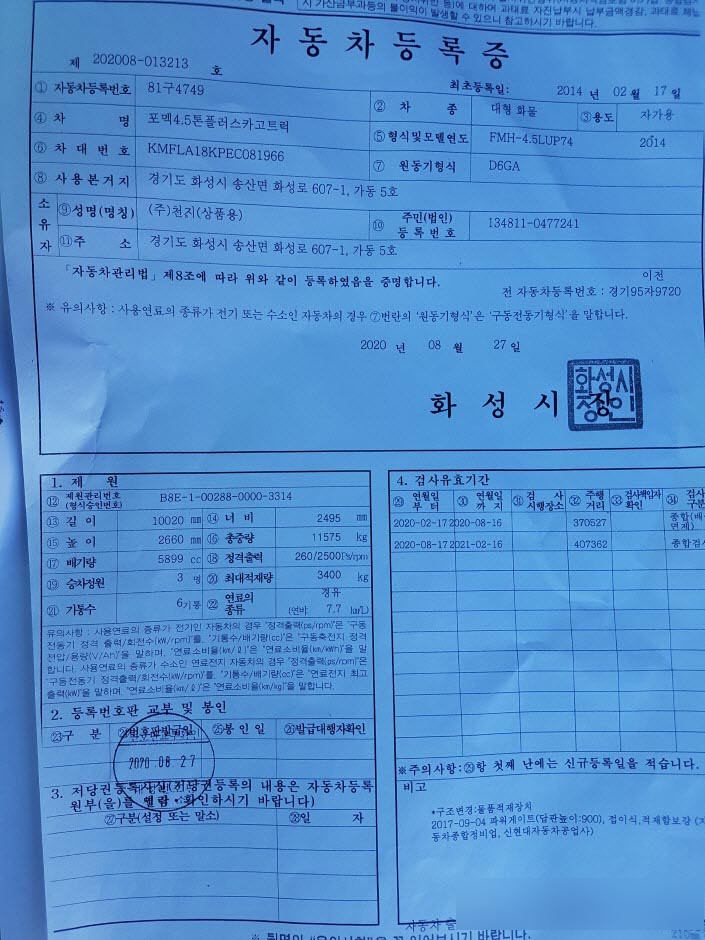 시 가산금부과등의 불이익이 발생할 수 있으니 참고하시기 바랍니다.
자동차등록증
제 202008-013213 호
최초등록일: 2014 년 02 월 17 일
① 자동차등록번호 81구4749 ② 차 종 대형 화물 ③용도 자가용
④ 차 명 포멕4.5톤플러스카고트럭 ⑤형식및모델연도 FMH-4.5LUP74 2014
⑥ 차 대 번 호 KMFLA18KPEC081966 ⑦ 원동기형식 D6GA
⑧ 사 용 본 거 지 경기도 화성시 송산면 화성로 607-1, 가동 5호
소유자 ⑨성명(명칭) (주)천지(상품용) ⑩ 주민(법인)등록번호 134811-0477241
⑪주 소 경기도 화성시 송산면 화성로 607-1, 가동 5호
「자동차관리법」제8조에 따라 위와 같이 등록하였음을 증명합니다.
이전
전 자동차등록번호 : 경기95자9720
※ 유의사항 : 사용연료의 종류가 전기 또는 수소인 자동차의 경우 ⑦번란의 '원동기형식'은 '구동전동기형식'을 말합니다.
2020 년 08 월 27 일
화 성 시 장
화성시장인
1. 제 원
⑫ 제원관리번호 (형식승인번호) B8E-1-00288-0000-3314
⑬ 길 이 10020 mm ⑭ 너 비 2495 mm
⑮ 높 이 2660 mm ⑯ 총중량 11575 kg
⑰ 배기량 5899 cc ⑱ 정격출력 260/2500Ps/rpm
⑲ 승차정원 3 명 ⑳ 최대적재량 3400 kg
㉑ 기통수 6기통 ㉒ 연료의 종류 경유 (연비: 7.7 km/L)
유의사항 : 사용연료의 종류가 전기인 자동차의 경우 "정격출력(ps/rpm)"은 "구동
전동기 정격 출력/회전수(kW/rpm)"를, "기통수/배기량(cc)"은 "구동축전지 정격
전압/용량(V/Ah)"을 말하며, "연료소비율(km/ℓ)"은 "연료소비율(km/kWh)"을 말
합니다. 사용연료의 종류가 수소인 연료전지 자동차의 경우 "정격출력(ps/rpm)"은
"구동전동기 정격출력/회전수(kW/rpm)"를, "기통수/배기량(cc)"은 "연료전지 최고
출력(kW)"을 말하며, "연료소비율(km/ℓ)"은 "연료소비율(km/kg)"을 말합니다.
2. 등록번호판 교부 및 봉인
㉓구 분 ㉔번호판발급일 ㉕봉 인 일 ㉖발급대행자확인
2020 08 27
3. 저당권등록사실(저당권등록의 내용은 자동차등록
원부(을)를 열람·확인하시기 바랍니다)
㉗구분(설정 또는 말소) ㉘일 자
4. 검사유효기간
㉙ 연월일 부터 ㉚ 연월일 까지 ㉛ 검 사 시행장소 ㉜ 주행 거리 ㉝ 검사책임자 확인 ㉞ 검사 구분
2020-02-17 2020-08-16 370527
2020-08-17 2021-02-16 407362 종합검사
※주의사항:㉙항 첫째 난에는 신규등록일을 적습니다.
비고
*구조변경:물품적재장치
2017-09-04 파워게이트(답판높이:900), 접이식,적재함보강
동차종합정비업, 신현대자동차공업사)